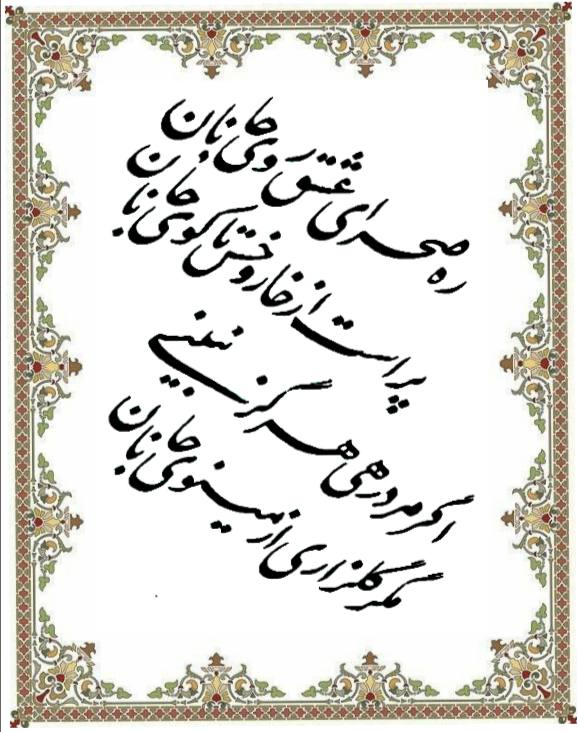 ره صحرای عشق و روی جانان
پر است از خار و خس تا کوی جانان
اگر مرد رهی هرگز نبینی
مگر گلزاری از مینوی جانان